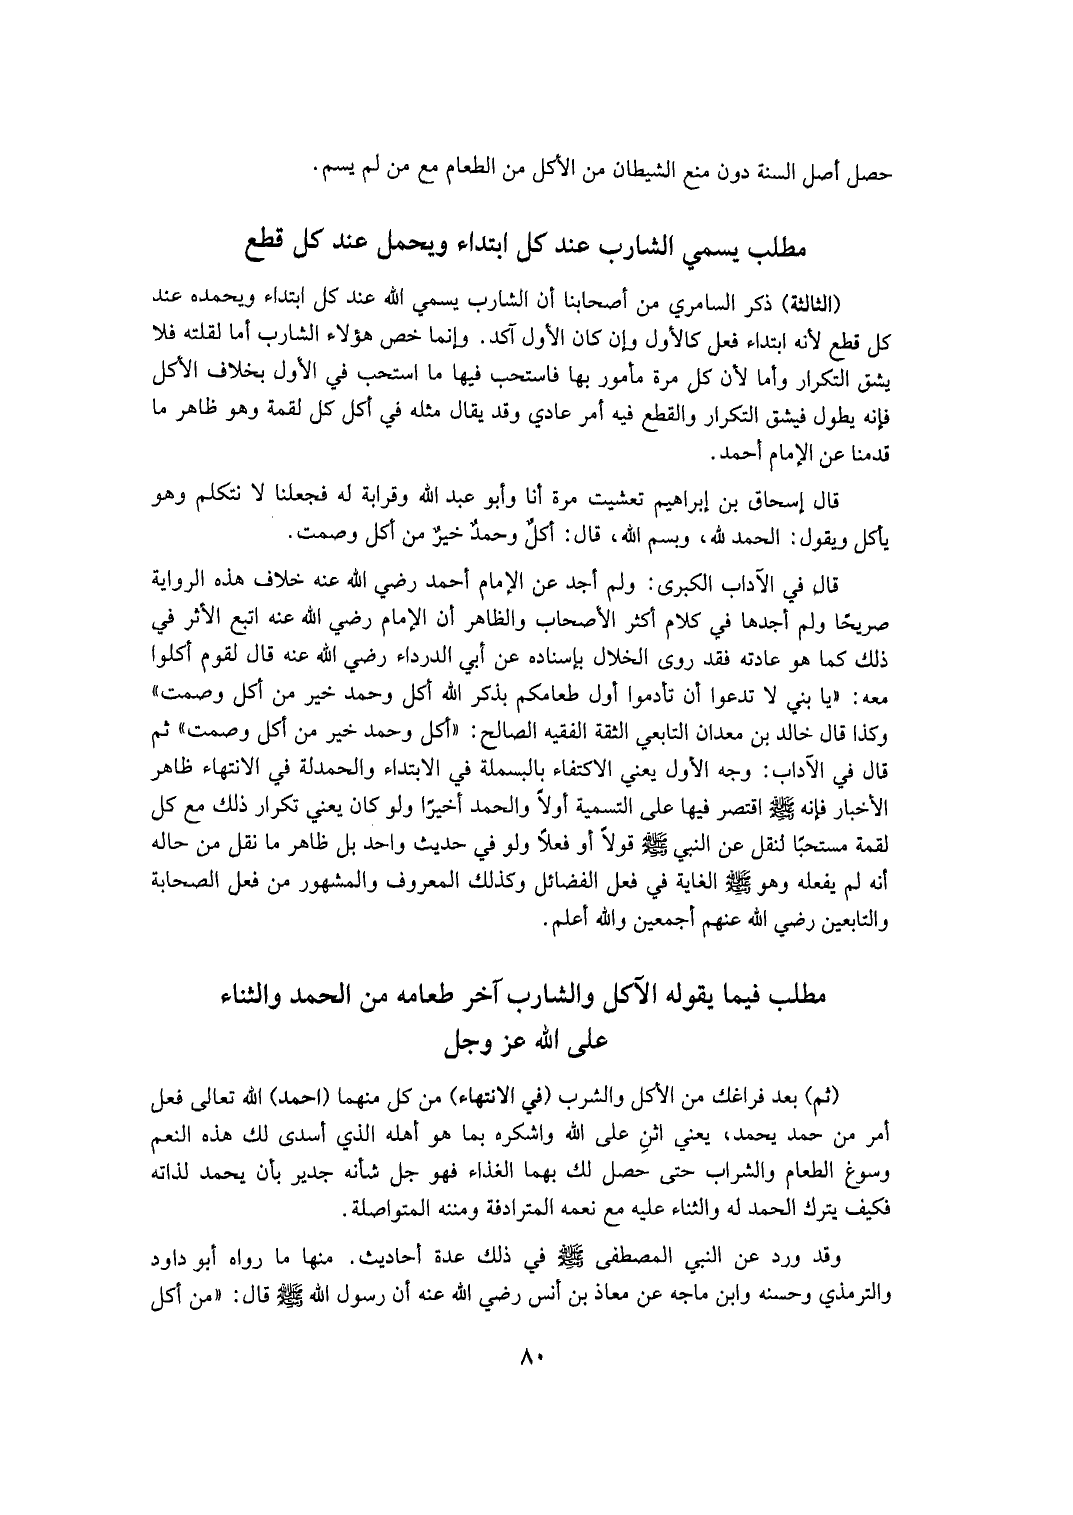 حصل أصل السنة دون منع الشيطان من الأكل من الطعام مع من لم يسم.
مطلب يسمي الشارب عند كل ابتداء ويحمل عند كل قطع
(الثالثة) ذكر السامري من أصحابنا أن الشارب يسمي الله عند كل ابتداء ويحمده عند
كل قطع لأنه ابتداء فعل كالأول وإن كان الأول آكد. وإنما خص هؤلاء الشارب أما لقلته فلا
يشق التكرار وأما لأن كل مرة مأمور بها فاستحب فيها ما استحب في الأول بخلاف الأكل
فإنه يطول فيشق التكرار والقطع فيه أمر عادي وقد يقال مثله في أكل كل لقمة وهو ظاهر ما
قدمنا عن الإمام أحمد.
قال إسحاق بن إبراهيم تعشيت مرة أنا وأبو عبد الله وقرابة له فجعلنا لا نتكلم وهو
يأكل ويقول: الحمد لله، وبسم الله، قال: أكلٌ وحمدٌ خيرٌ من أكل وصمت.
قال في الآداب الكبرى: ولم أجد عن الإمام أحمد رضي الله عنه خلاف هذه الرواية
صريحًا ولم أجدها في كلام أكثر الأصحاب والظاهر أن الإمام رضي الله عنه اتبع الأثر في
ذلك كما هو عادته فقد روى الخلال بإسناده عن أبي الدرداء رضي الله عنه قال لقوم أكلوا
معه: «يا بني لا تدعوا أن تأدموا أول طعامكم بذكر الله أكل وحمد خير من أكل وصمت»
وكذا قال خالد بن معدان التابعي الثقة الفقيه الصالح: «أكل وحمد خير من أكل وصمت» ثم
قال في الآداب: وجه الأول يعني الاكتفاء بالبسملة في الابتداء والحمدلة في الانتهاء ظاهر
الأخبار فإنه ﷺ اقتصر فيها على التسمية أولاً والحمد أخيرًا ولو كان يعني تكرار ذلك مع كل
لقمة مستحبًا لنقل عن النبي ﷺ قولاً أو فعلاً ولو في حديث واحد بل ظاهر ما نقل من حاله
أنه لم يفعله وهو ﷺ الغاية في فعل الفضائل وكذلك المعروف والمشهور من فعل الصحابة
والتابعين رضي الله عنهم أجمعين والله أعلم.
مطلب فيما يقوله الآكل والشارب آخر طعامه من الحمد والثناء
على الله عز وجل
(ثم) بعد فراغك من الأكل والشرب (في الانتهاء) من كل منهما (احمد) الله تعالى فعل
أمر من حمد يحمد، يعني اثنِ على الله واشكره بما هو أهله الذي أسدى لك هذه النعم
وسوغ الطعام والشراب حتى حصل لك بهما الغذاء فهو جل شأنه جدير بأن يحمد لذاته
فكيف يترك الحمد له والثناء عليه مع نعمه المترادفة ومننه المتواصلة.
وقد ورد عن النبي المصطفى ﷺ في ذلك عدة أحاديث. منها ما رواه أبو داود
والترمذي وحسنه وابن ماجه عن معاذ بن أنس رضي الله عنه أن رسول الله ﷺ قال: «من أكل
٨٠